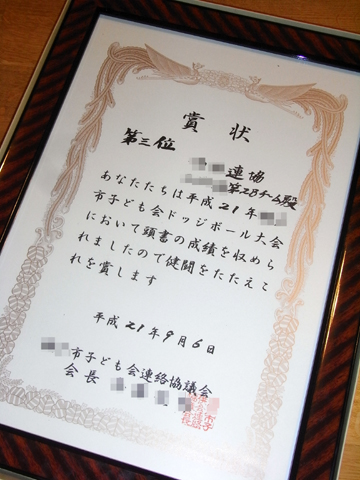 賞状
第三位
連協
第2Bチーム殿
あなたたちは平成21年
市子ども会ドッジボール大会
において頭書の成績を収めら
れましたので健闘をたたえこ
れを賞します
平成21年9月6日
市子ども会連絡協議会
会長